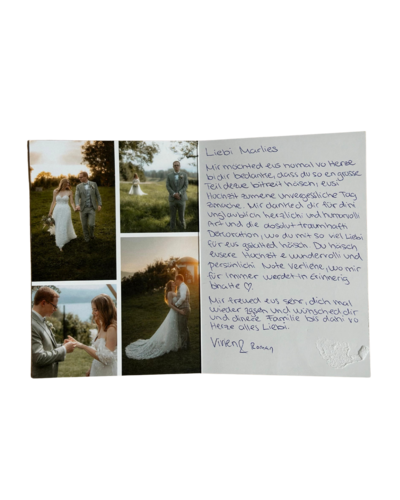 Liebi Marlies
Mir möchted eus numal vo Herze
bi dir bedanke, dass du so en grosse
Teil dezue bitreit häsch, eusi
Hochzit zumene unvergessliche Tag
zmache. Mir danked dir für dini
unglaublich herzlichi und humorvolli
Art und die absolut traumhaft
Dekoration, wo du mit so viel Liebi
für eus gstalted häsch. Du häsch
eusere Hochzit e wundervolli und
persönlichi Note verliehe, wo mir
für immer werdet in Erinnerig
bhalte ♡.
Mir freued eus sehr, dich mal
wieder zgseh und wünsched dir
und dinere Familie bis dahi vo
Herze alles Liebi.